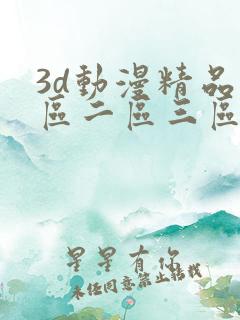 3d動漫精品
區二區三區
星星有你
未经同意禁止转载